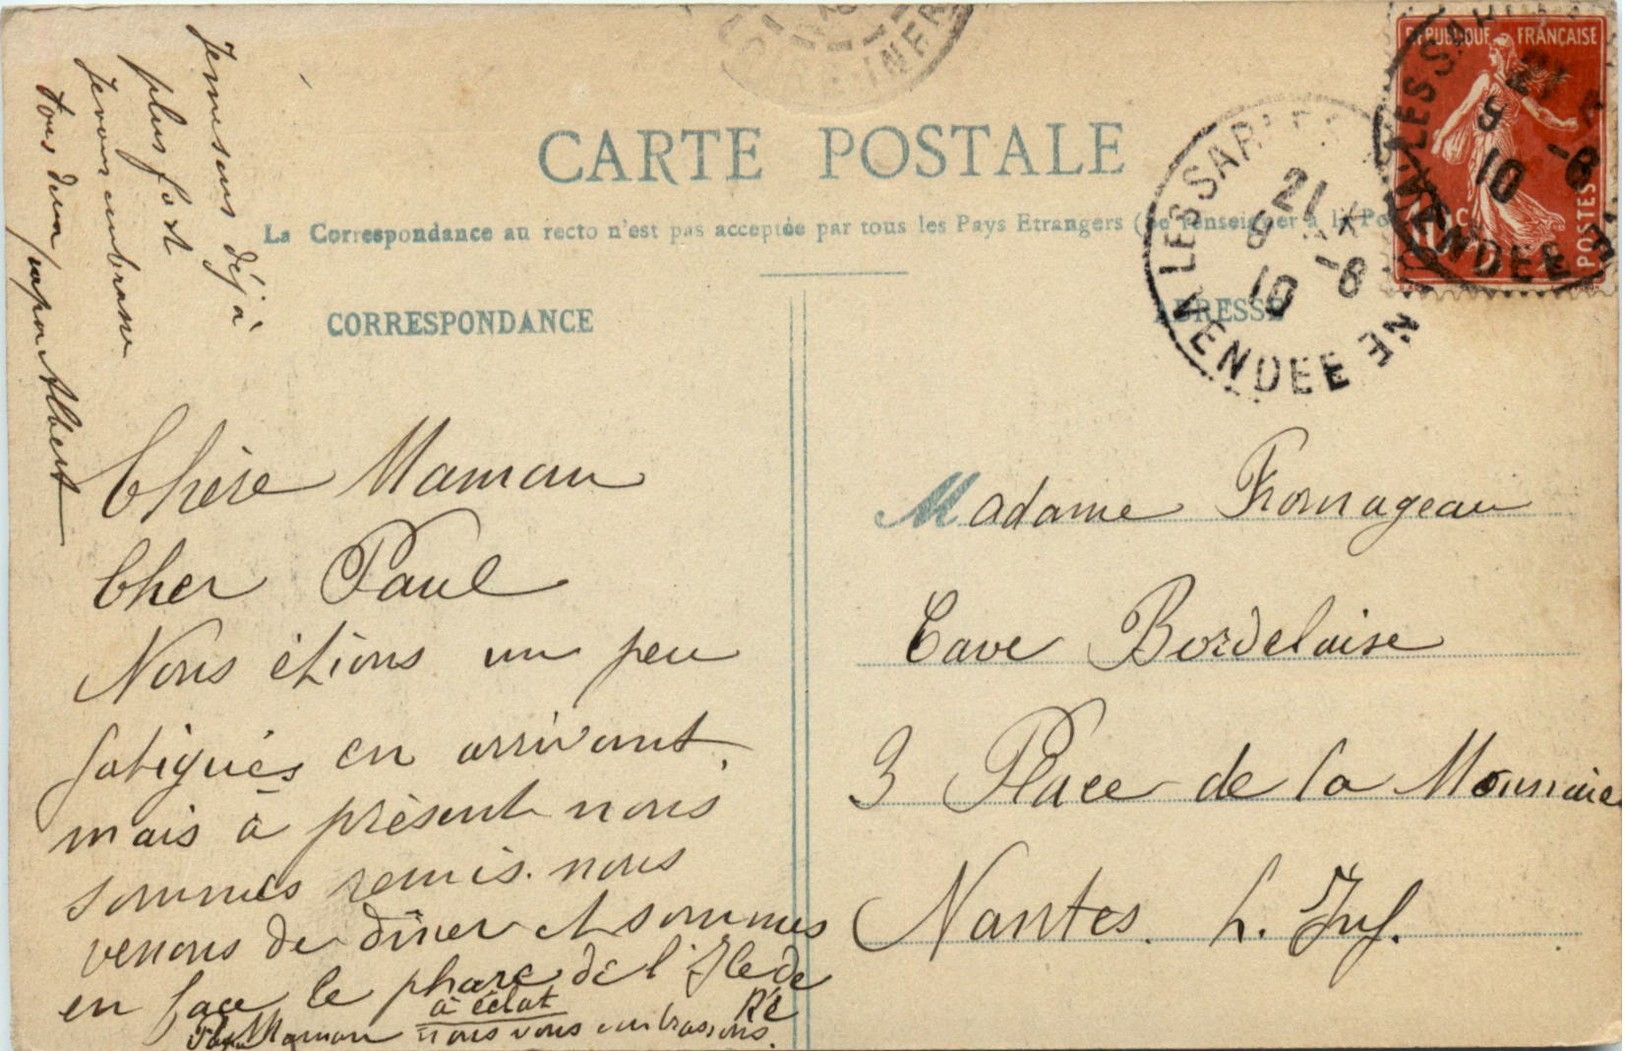 CARTE POSTALE
La Correspondance au recto n'est pas acceptée par tous les Pays Etrangers (Se renseigner à la Po
CORRESPONDANCE
ADRESSE
RÉPUBLIQUE FRANÇAISE
POSTES
10c
LES SABLES
VENDEE
21
9
10
8
INFRE
Chère Maman
Cher Paul
Nous étions un peu
fatigués en arrivant,
mais à présent nous
sommes remis. nous
venons de dîner et sommes
en face le phare de l'Ile de
Ré
à éclat
Maman nous vous embrassons.
Je me sens déjà
plus fort
Je vous embrasse
tous deux papa Albert
Madame Fromageau
Cave Bordelaise
3 Place de la Monnaie
Nantes. L. Inf.